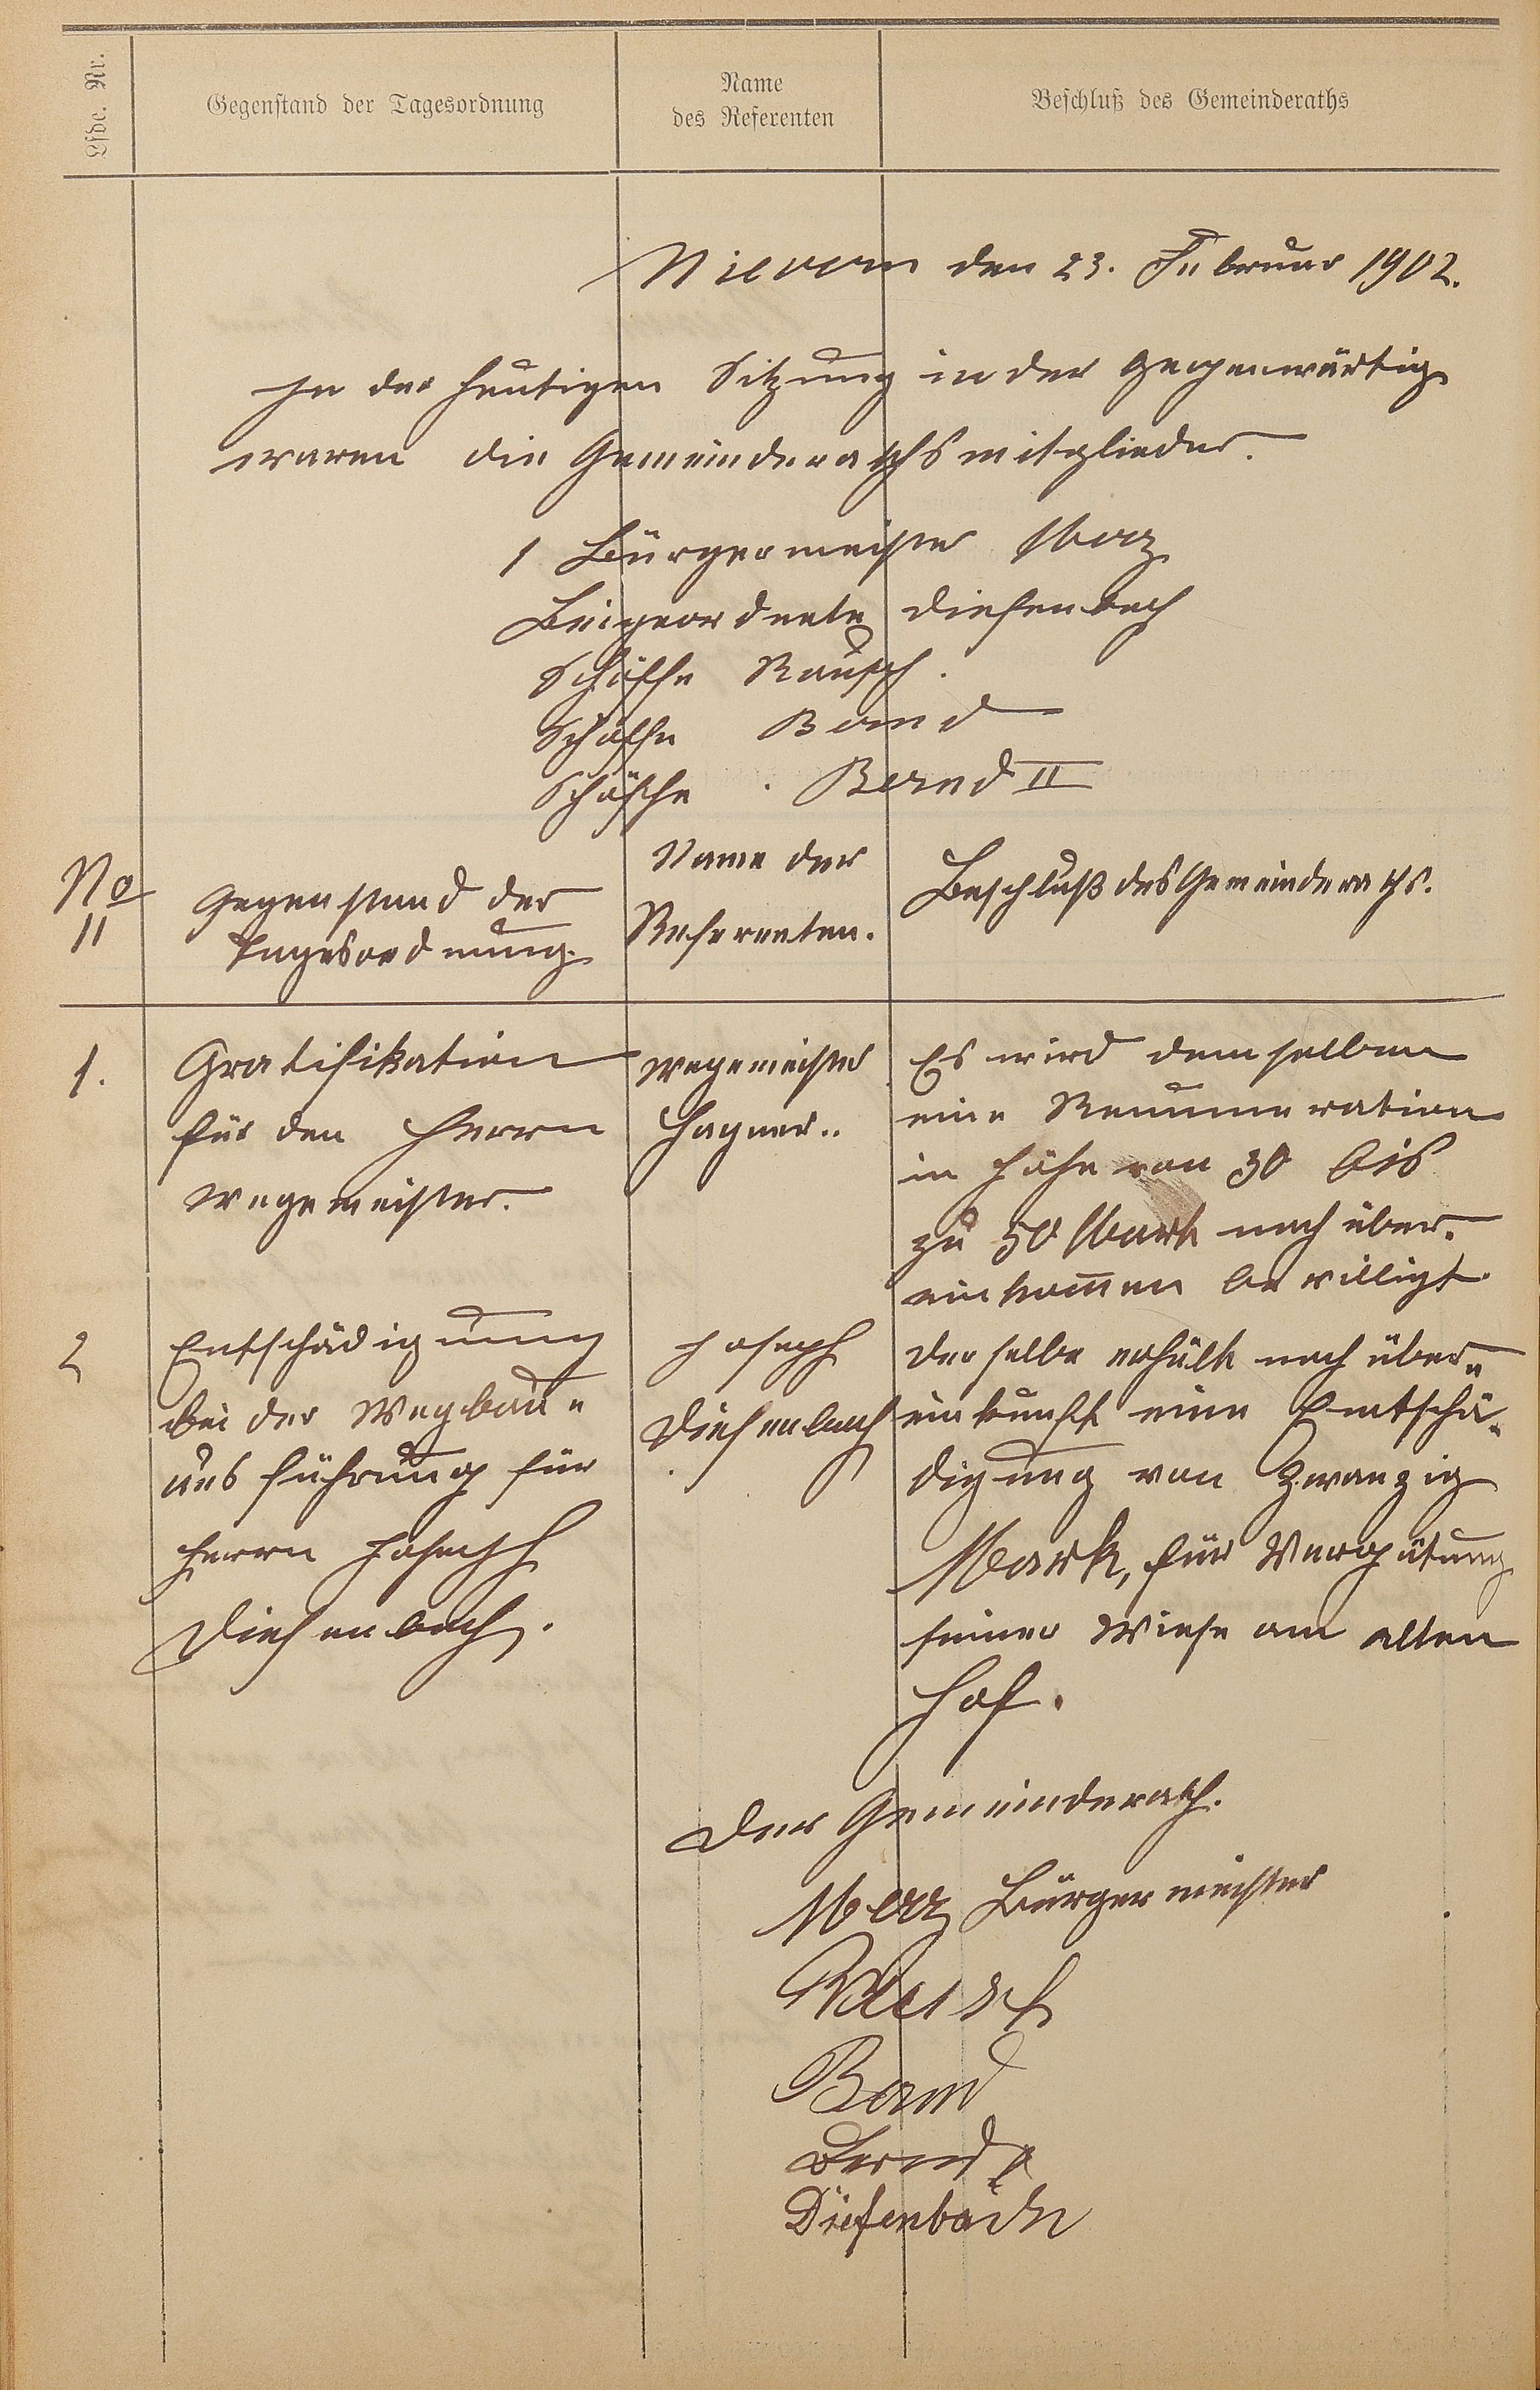 Lfde. Nr.
Gegenstand der Tagesordnung
Name
des Referenten
Beschluß des Gemeinderaths
Nievern den 23. Februar 1902.
In der heutigen Sitzung in der gegenwärtig
waren die Gemeinderathsmitglieder.
1 Bürgermeister Marz
Beigeordnete Diefenbach
Schöffe Rausch.
Schöffe Band
Schöffe Bernd II
No
II
Gegenstand der
Tagesordnung.
Name der
Referenten.
Beschluß des Gemeinderaths.
1.
Gratifikation
für den Herrn
Wegemeister.
Wegemeister
Hagner..
Es wird demselben
eine Renumeration
in Höhe von 30 bis
zu 50 Mark nach über-
einkommen bewilligt.
2
Entschädigung
bei der Wegbau-
ausführung für
Herrn Joseph
Diefenbach.
Joseph
Diefenbach
Derselbe erhält nach über-
einkunft eine Entschä-
digung von Zwanzig
Mark, für Vergütung
seiner Wiese am alten
Hof.
Der Gemeinderath.
Marz Bürgermeister
Rausch
Band
Bernd
Diefenbach